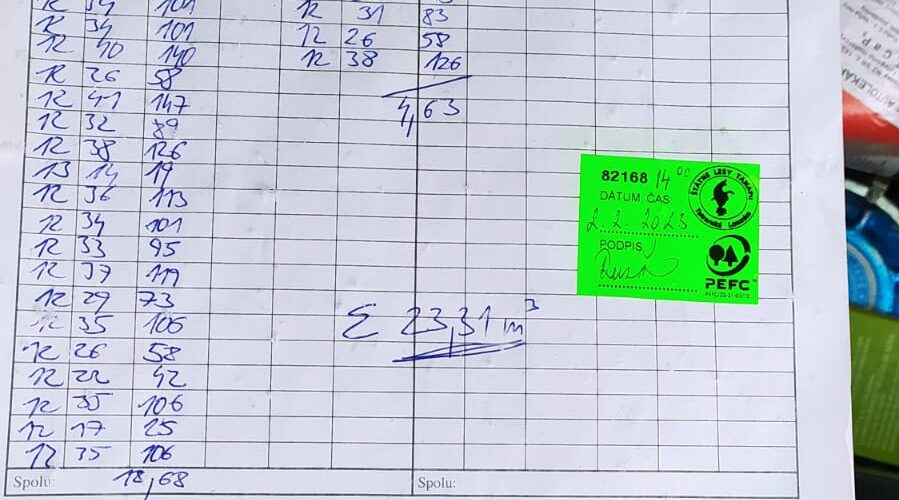 12 34 101
12 34 101
12 40 140
12 26 58
12 41 147
12 32 89
12 38 126
13 14 19
12 36 113
12 34 101
12 33 95
12 37 119
12 29 73
12 35 106
12 26 58
12 22 42
12 35 106
12 17 25
12 35 106
Spolu: 18,68
12 31 83
12 26 58
12 38 126
4,63
Σ 23,31 m³
Spolu:
82168 14⁰⁰
DÁTUM ČAS
2.2.2023
PODPIS
ŠTÁTNE LESY TANAPU
Tatranská Lomnica
PEFC
AUTOLEKÁR